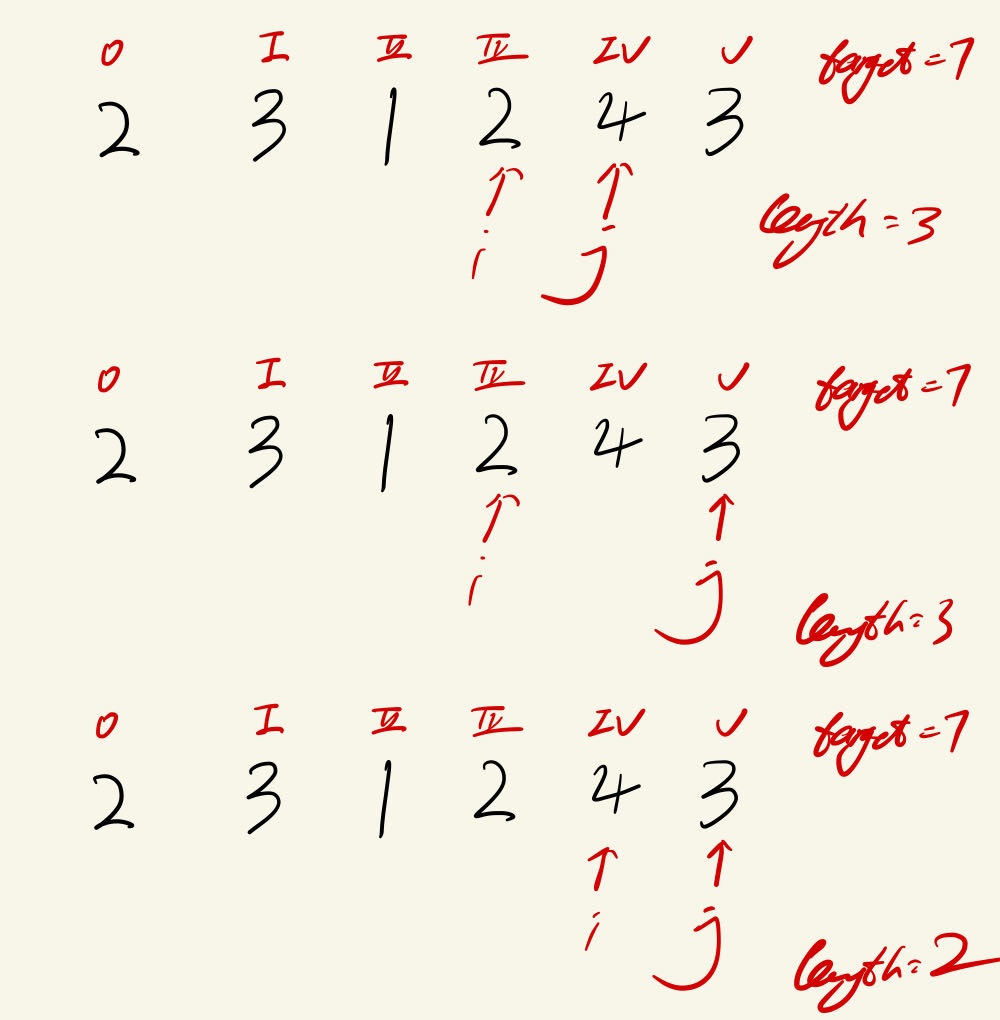 0 I II III IV V target=7
2 3 1 2 4 3
length=3
i j
0 I II III IV V target=7
2 3 1 2 4 3
i j length=3
0 I II III IV V target=7
2 3 1 2 4 3
i j length=2